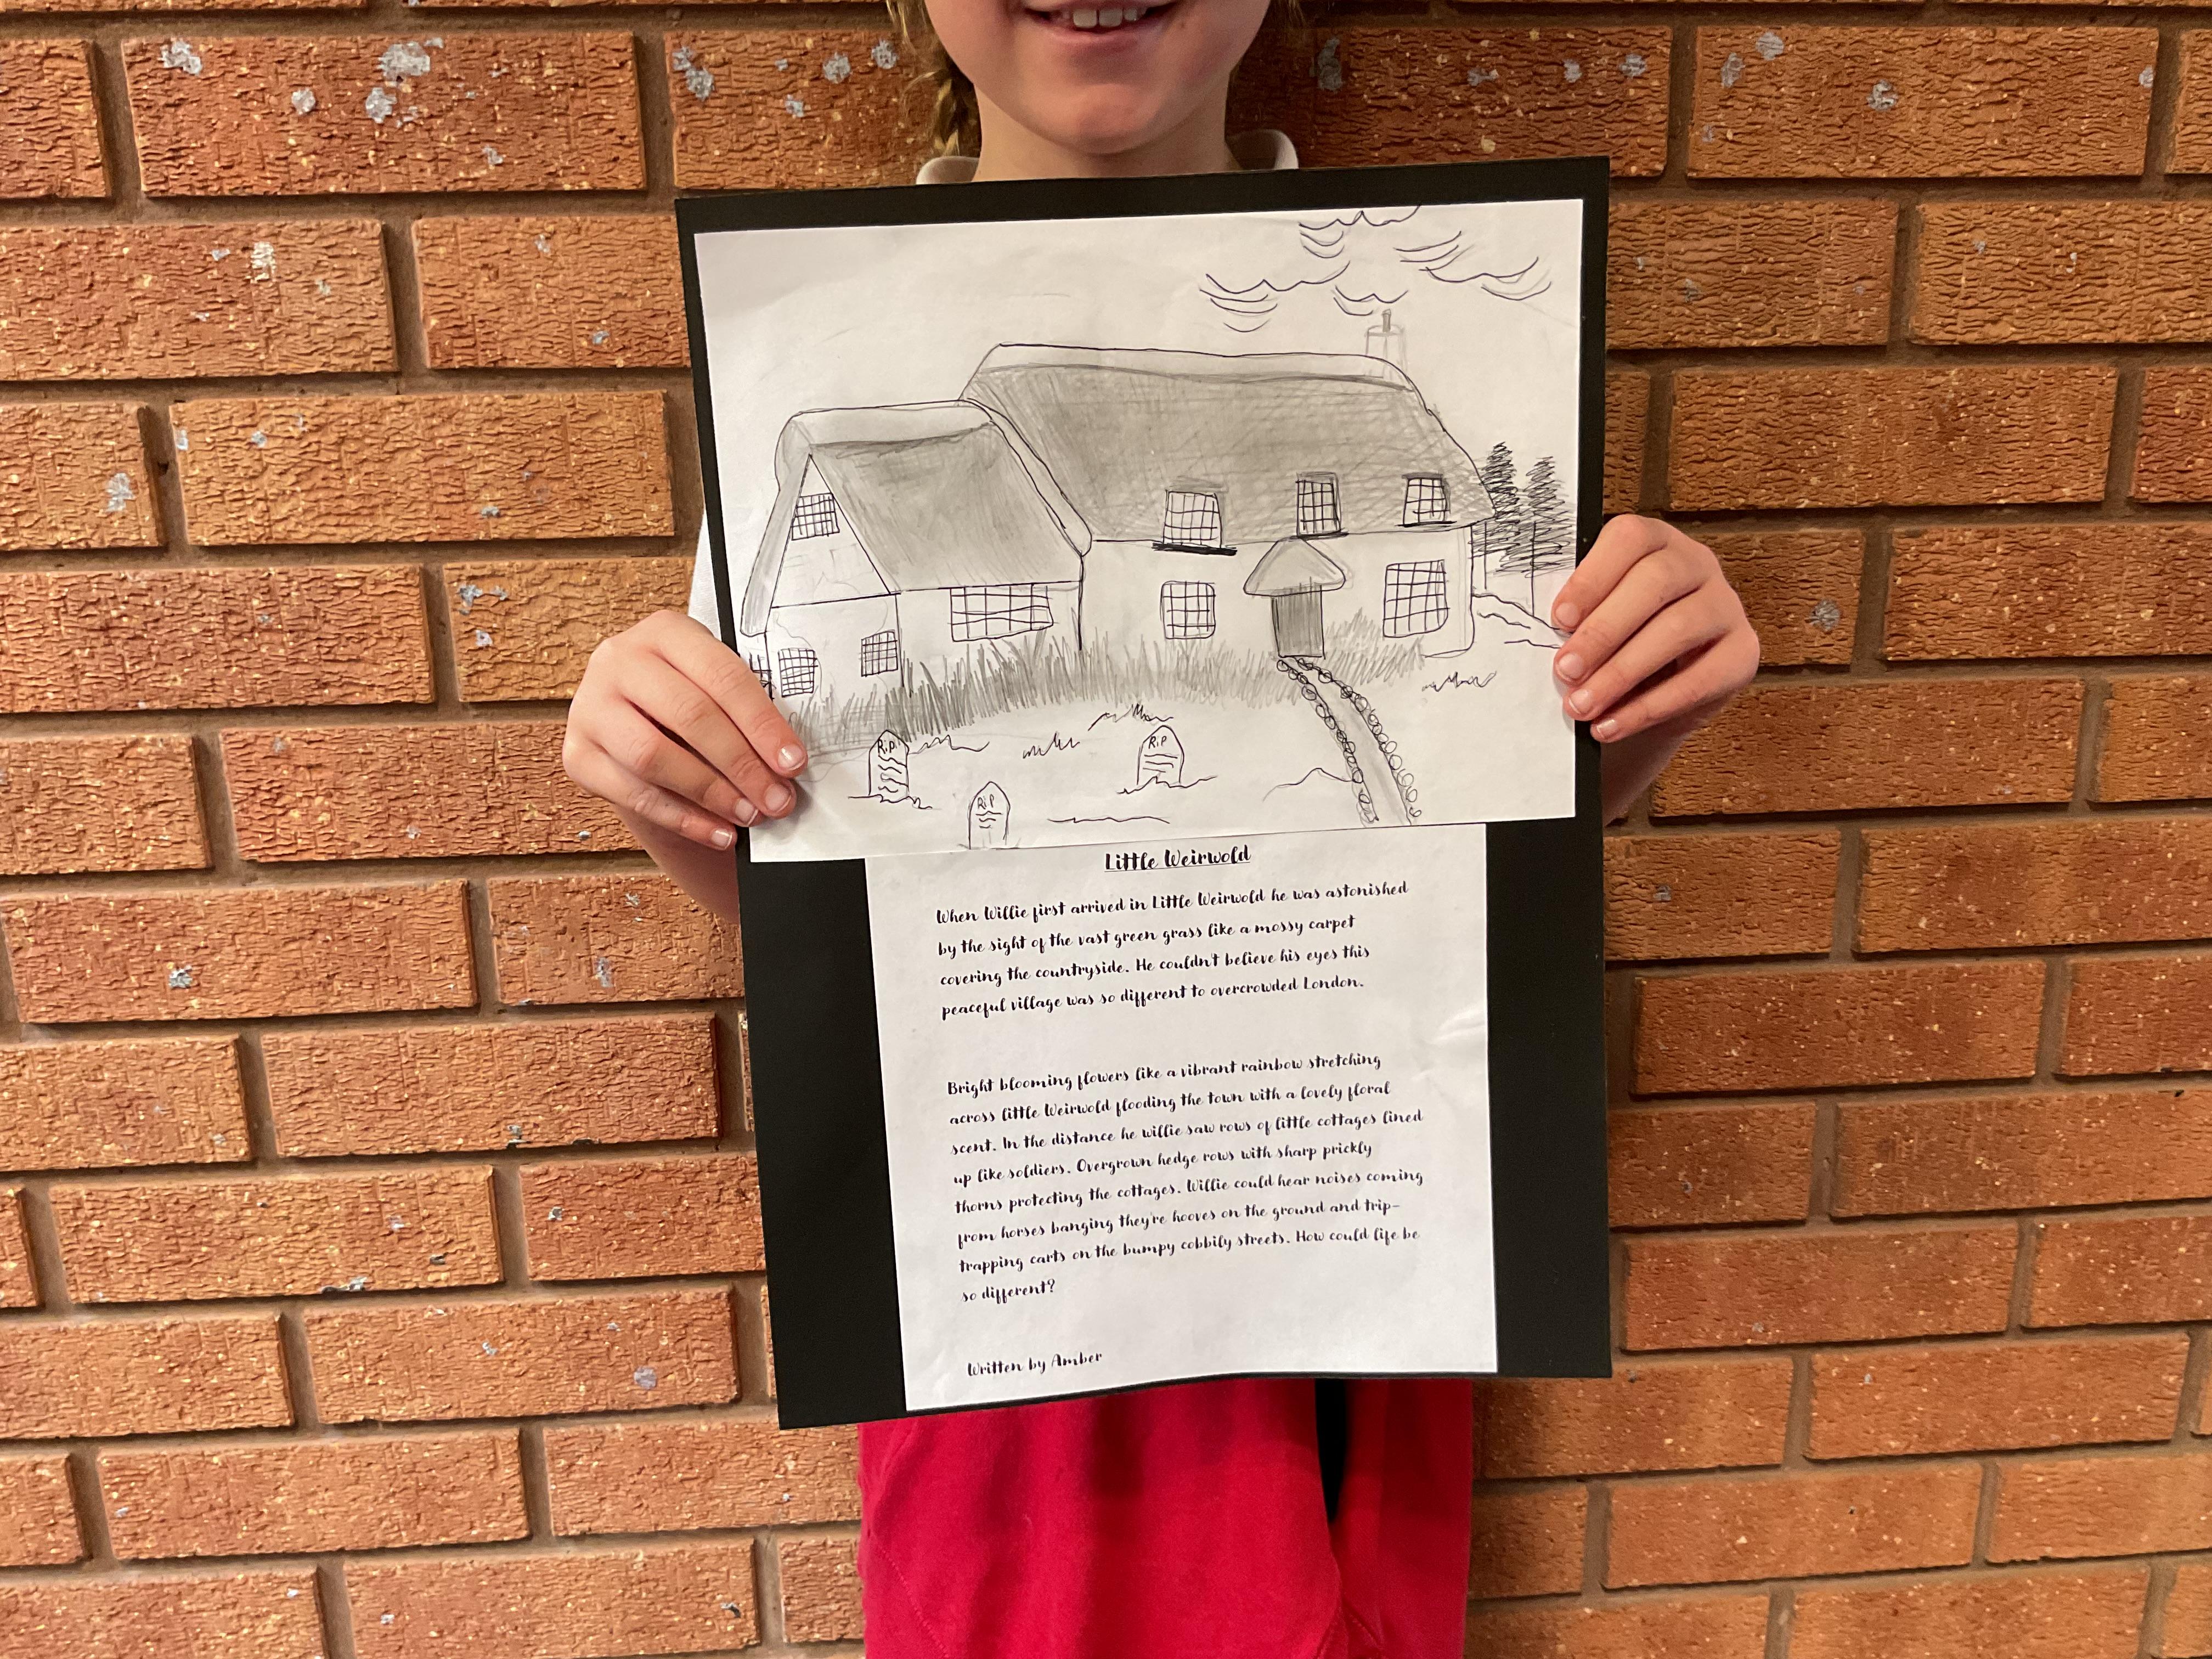 RiP.
RiP
RiP
Little Weirwold
When Willie first arrived in Little Weirwold he was astonished
by the sight of the vast green grass like a mossy carpet
covering the countryside. He couldn't believe his eyes this
peaceful village was so different to overcrowded London.
Bright blooming flowers like a vibrant rainbow stretching
across little Weirwold flooding the town with a lovely floral
scent. In the distance he willie saw rows of little cottages lined
up like soldiers. Overgrown hedge rows with sharp prickly
thorns protecting the cottages. Willie could hear noises coming
from horses banging they're hooves on the ground and trip-
trapping carts on the bumpy cobbily streets. How could life be
so different?
Written by Amber